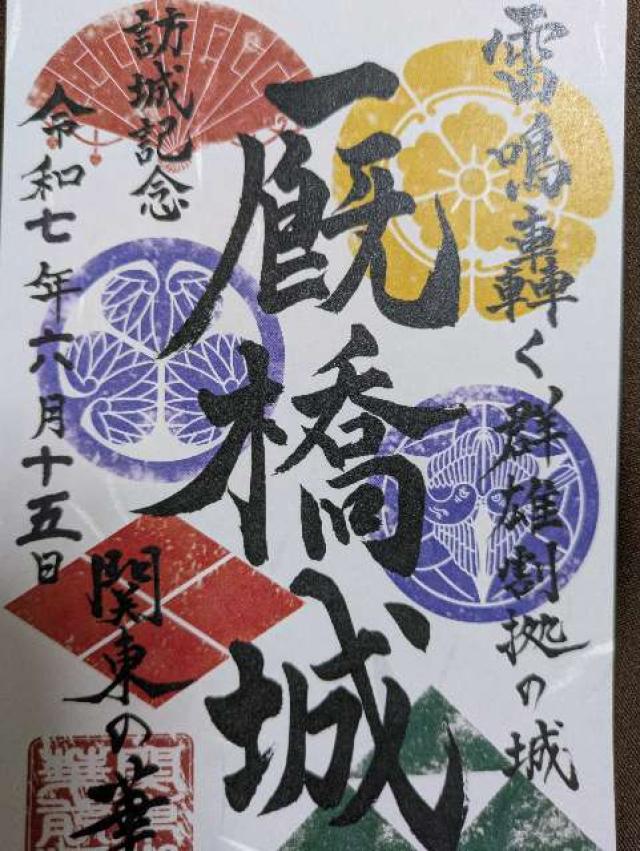 雷鳴轟く、群雄割拠の城
厩橋城
訪城記念
令和七年六月十五日
関東の華